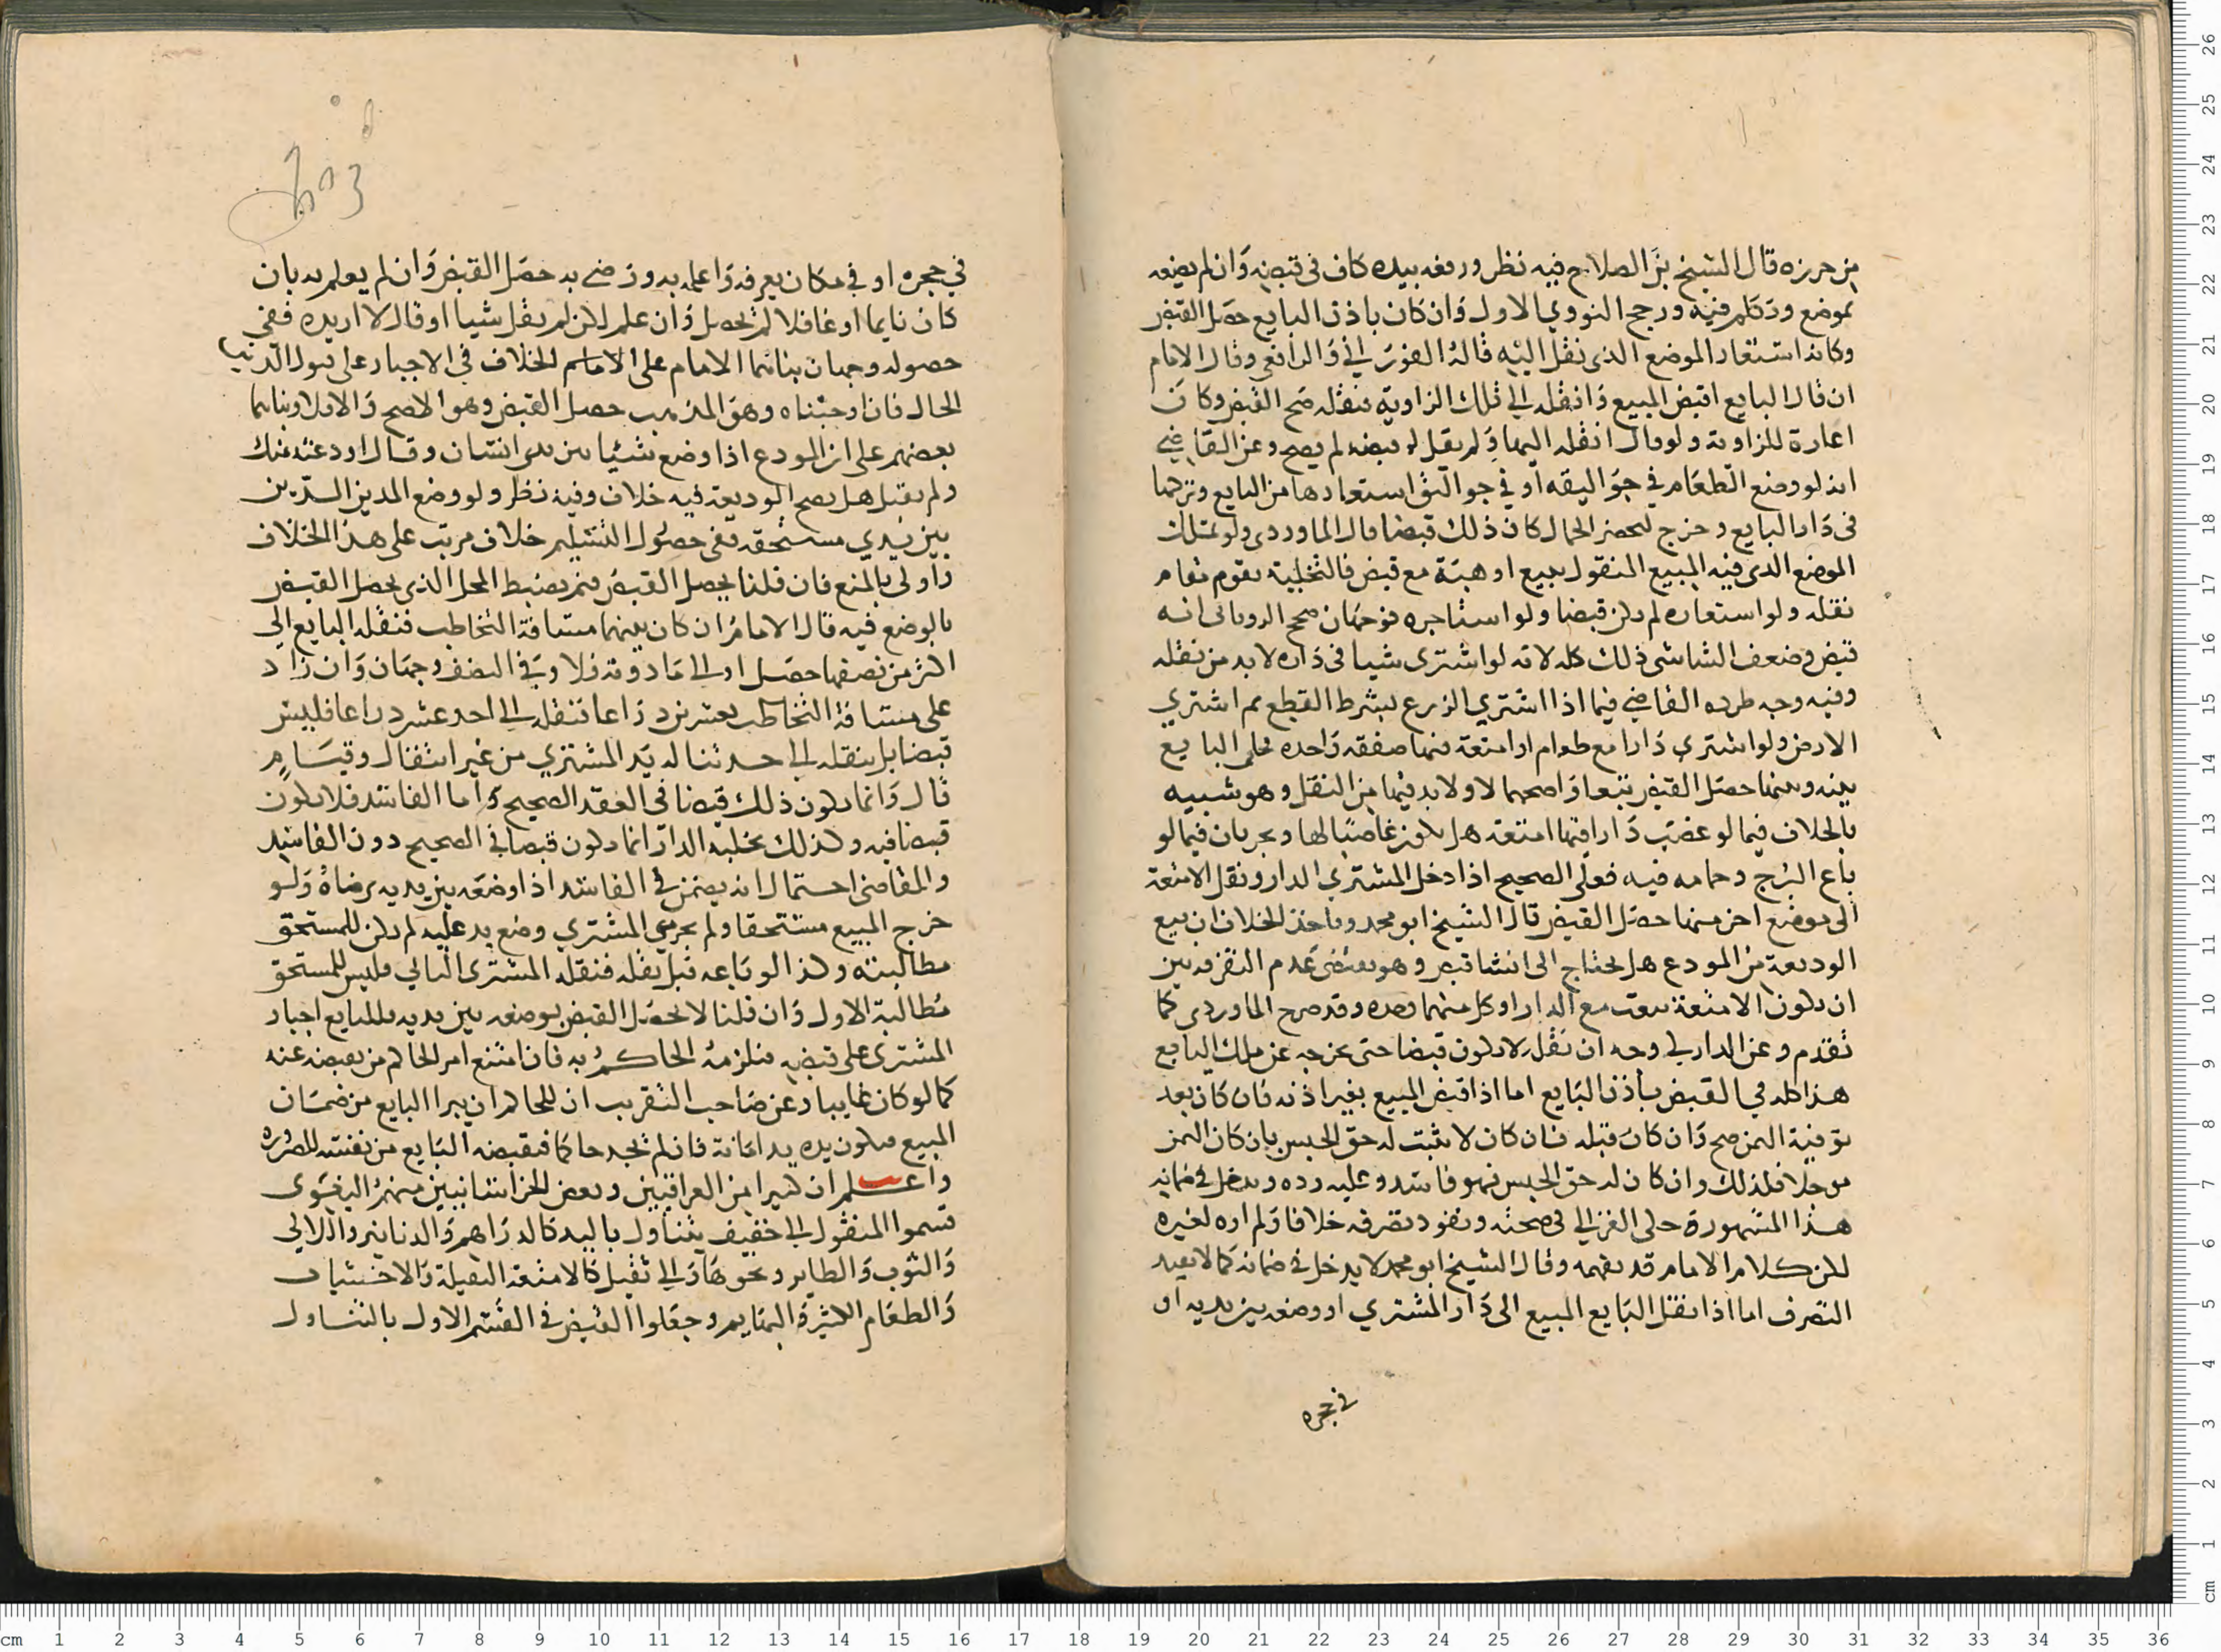 من حرزه قال الشيخ بن الصلاح فيه نظر ورفعه بيده كاف في قبضه وان لم يضعه
بموضع وتكلم فيه ورجح النووي الاول وان كان باذن البايع حصل القبض
وكانه استعار الموضع الذي نقل اليه قاله الفوراني والرافعي وقال الامام
ان قال البايع اقبض المبيع وانقله الى تلك الزاوية فنقله صح القبض وكان
اعارة للزاوية ولو قال انقله اليها ولم يقل لو قبضه لم يصح وعن القاضي
انه لو وضع الطعام في جواليقه او في جوالق استعارها من البايع وتركها
في دار البايع وخرج ليحضر الحمال كان ذلك قبضا قال الماوردي ولو تملك
الموضع الذي فيه المبيع المنقول ببيع او هبة مع قبض فالتخلية تقوم مقام
نقله ولو استعاره لم يكن قبضا ولو استاجره فوجهان صحح الروياني انه
قبض وضعف الشاشي ذلك كله لانه لو اشترى شيا في داره لا بد من نقله
وفيه وجه طرده القاضي فيما اذا اشتري الزرع بشرط القطع ثم اشتري
الارض ولو اشترى دارا مع طعام او امتعة فيها صفقه واحده فخلى البايع
بينه وبينها حصل القبض تبعا واصحهما لا ولا بد فيها من النقل وهو شبيه
بالخلاف فيما لو غصب دارا فيها امتعة هل يكون غاصبا لها ويجريان فيما لو
باع البرج وحمامه فيه فعلى الصحيح اذا دخل المشتري الدار ونقل الامتعة
الى موضع اخر منها حصل القبض قال الشيخ ابو محمد وماخذ الخلاف ان بيع
الوديعة من المودع هل يحتاج الى انشا قبض وهو يقتضي عدم التفرقة بين
ان يكون الامتعة بيعت مع الدار او كل منهما وحده وقد صرح الماوردي كما
تقدم وعن الدارلي وجه ان نقل لا يكون قبضا حتى يخرجه عن ملك البايع
هذا كله في القبض باذن البايع اما اذا قبض المبيع بغير اذنه فان كان بعد
توفية الثمن صح وان كان قبله فان كان لا يثبت له حق الحبس بان كان الثمن
موجلا فكذلك وان كان له حق الحبس فهو فاسد وعليه رده ويدخل في ضمانه
هذا المشهورة حكى الغزالي في صحته ونفوذ تصرفه خلافا ولم اره لغيره
لكن كلام الامام قد يفهمه وقال الشيخ ابو محمد لا يدخل في ضمانه كما لا يفيد
التصرف اما اذا نقل البايع المبيع الى دار المشتري او وضعه بين يديه او
في حجره
في حجره او في مكان يعرفه واعلمه به ورضي به حصل القبض وان لم يعلم به بان
كان نايما او غافلا لم يحصل وان علم لكن لم يقل شيا او قال لا اريده ففي
حصوله وجهان بناهما الامام على الخلاف في الاجبار على قبول الدين
الحال فان اوجبناه وهو المذهب حصل القبض وهو الاصح والا فلا وبناهما
بعضهم على ان المودع اذا وضع شيئا بين يدي انسان وقال اودعته عندك
ولم يقبل هل يصح الوديعة فيه خلاف وفيه نظر ولو وضع المدين الدين
بين يدي مستحقه ففي حصول التسليم خلاف مرتب على هذا الخلاف
واولى بالمنع فان قلنا يحصل القبض فبم يضبط المحل الذي يحصل القبض
بالوضع فيه قال الامام ان كان بينهما مسافة التخاطب فنقله البايع الى
اكثر من نصفها حصل او الى ما دونه فلا وفي النصف وجهان وان زاد
على مسافة التخاطب بعشرين ذراعا فنقله الى احد عشر ذراعا فليس
قبضا بل ينقله الى حد تناله يد المشتري من غير انتقال وقيام
قال وانما يكون ذلك قبضا في العقد الصحيح واما الفاسد فلا يكون
قبضا فيه وكذلك تخلية الدار انما يكون قبضا في الصحيح دون الفاسد
والقاضي احتمال انه يضمن في الفاسد اذا وضعه بين يديه برضاه ولو
خرج المبيع مستحقا ولم يجر من المشتري وضع يد عليه لم يكن للمستحق
مطالبته وكذا لو باعه قبل نقله فنقله المشتري الثاني فليس للمستحق
مطالبة الاول وان قلنا لا يحصل القبض بوضعه بين يديه فللبايع اجبار
المشتري على قبضه فيلزمه الحاكم به فان امتنع امر الحاكم من يقبضه عنه
كما لو كان غايبا وعن صاحب التقريب ان للحاكم ان يبرا البايع من ضمان
المبيع فيكون يده يد امانة فان لم نجد حاكما فيقبضه البايع من نفسه للضروره
واعلم ان كثيرا من العراقيين وبعض الخراسانيين منهم البغوى
قسموا المنقول الى خفيف يتناول باليد كالدراهم والدنانير واللالي
والثوب والطاير ونحوها والى ثقيل كالامتعة الثقيلة والاخشاب
والطعام الكثير والبهايم وجعلوا القبض في القسم الاول بالتناول